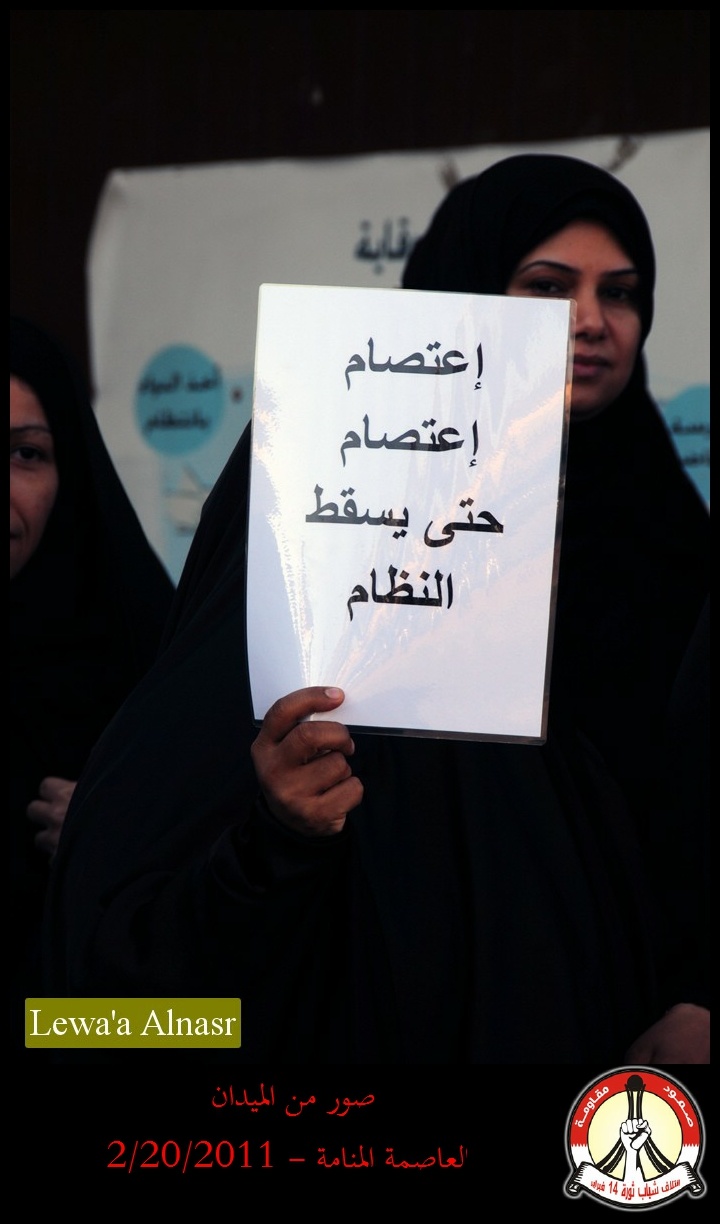 وقابة
إعتصام
إعتصام
حتى يسقط
النظام
أخذ الدواء
بانتظام
Lewa'a Alnasr
صور من الميدان
العاصمة المنامة – 2/20/2011
صمود مقاومة
ائتلاف شباب ثورة 14 فبراير